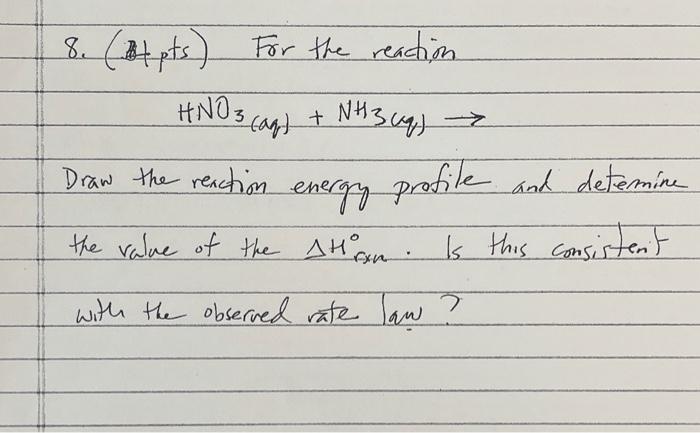 8. (4 pts) For the reaction
HNO3 (aq) + NH3 (aq) →
Draw the reaction energy profile and determine
the value of the ΔH°rxn. Is this consistent
with the observed rate law?